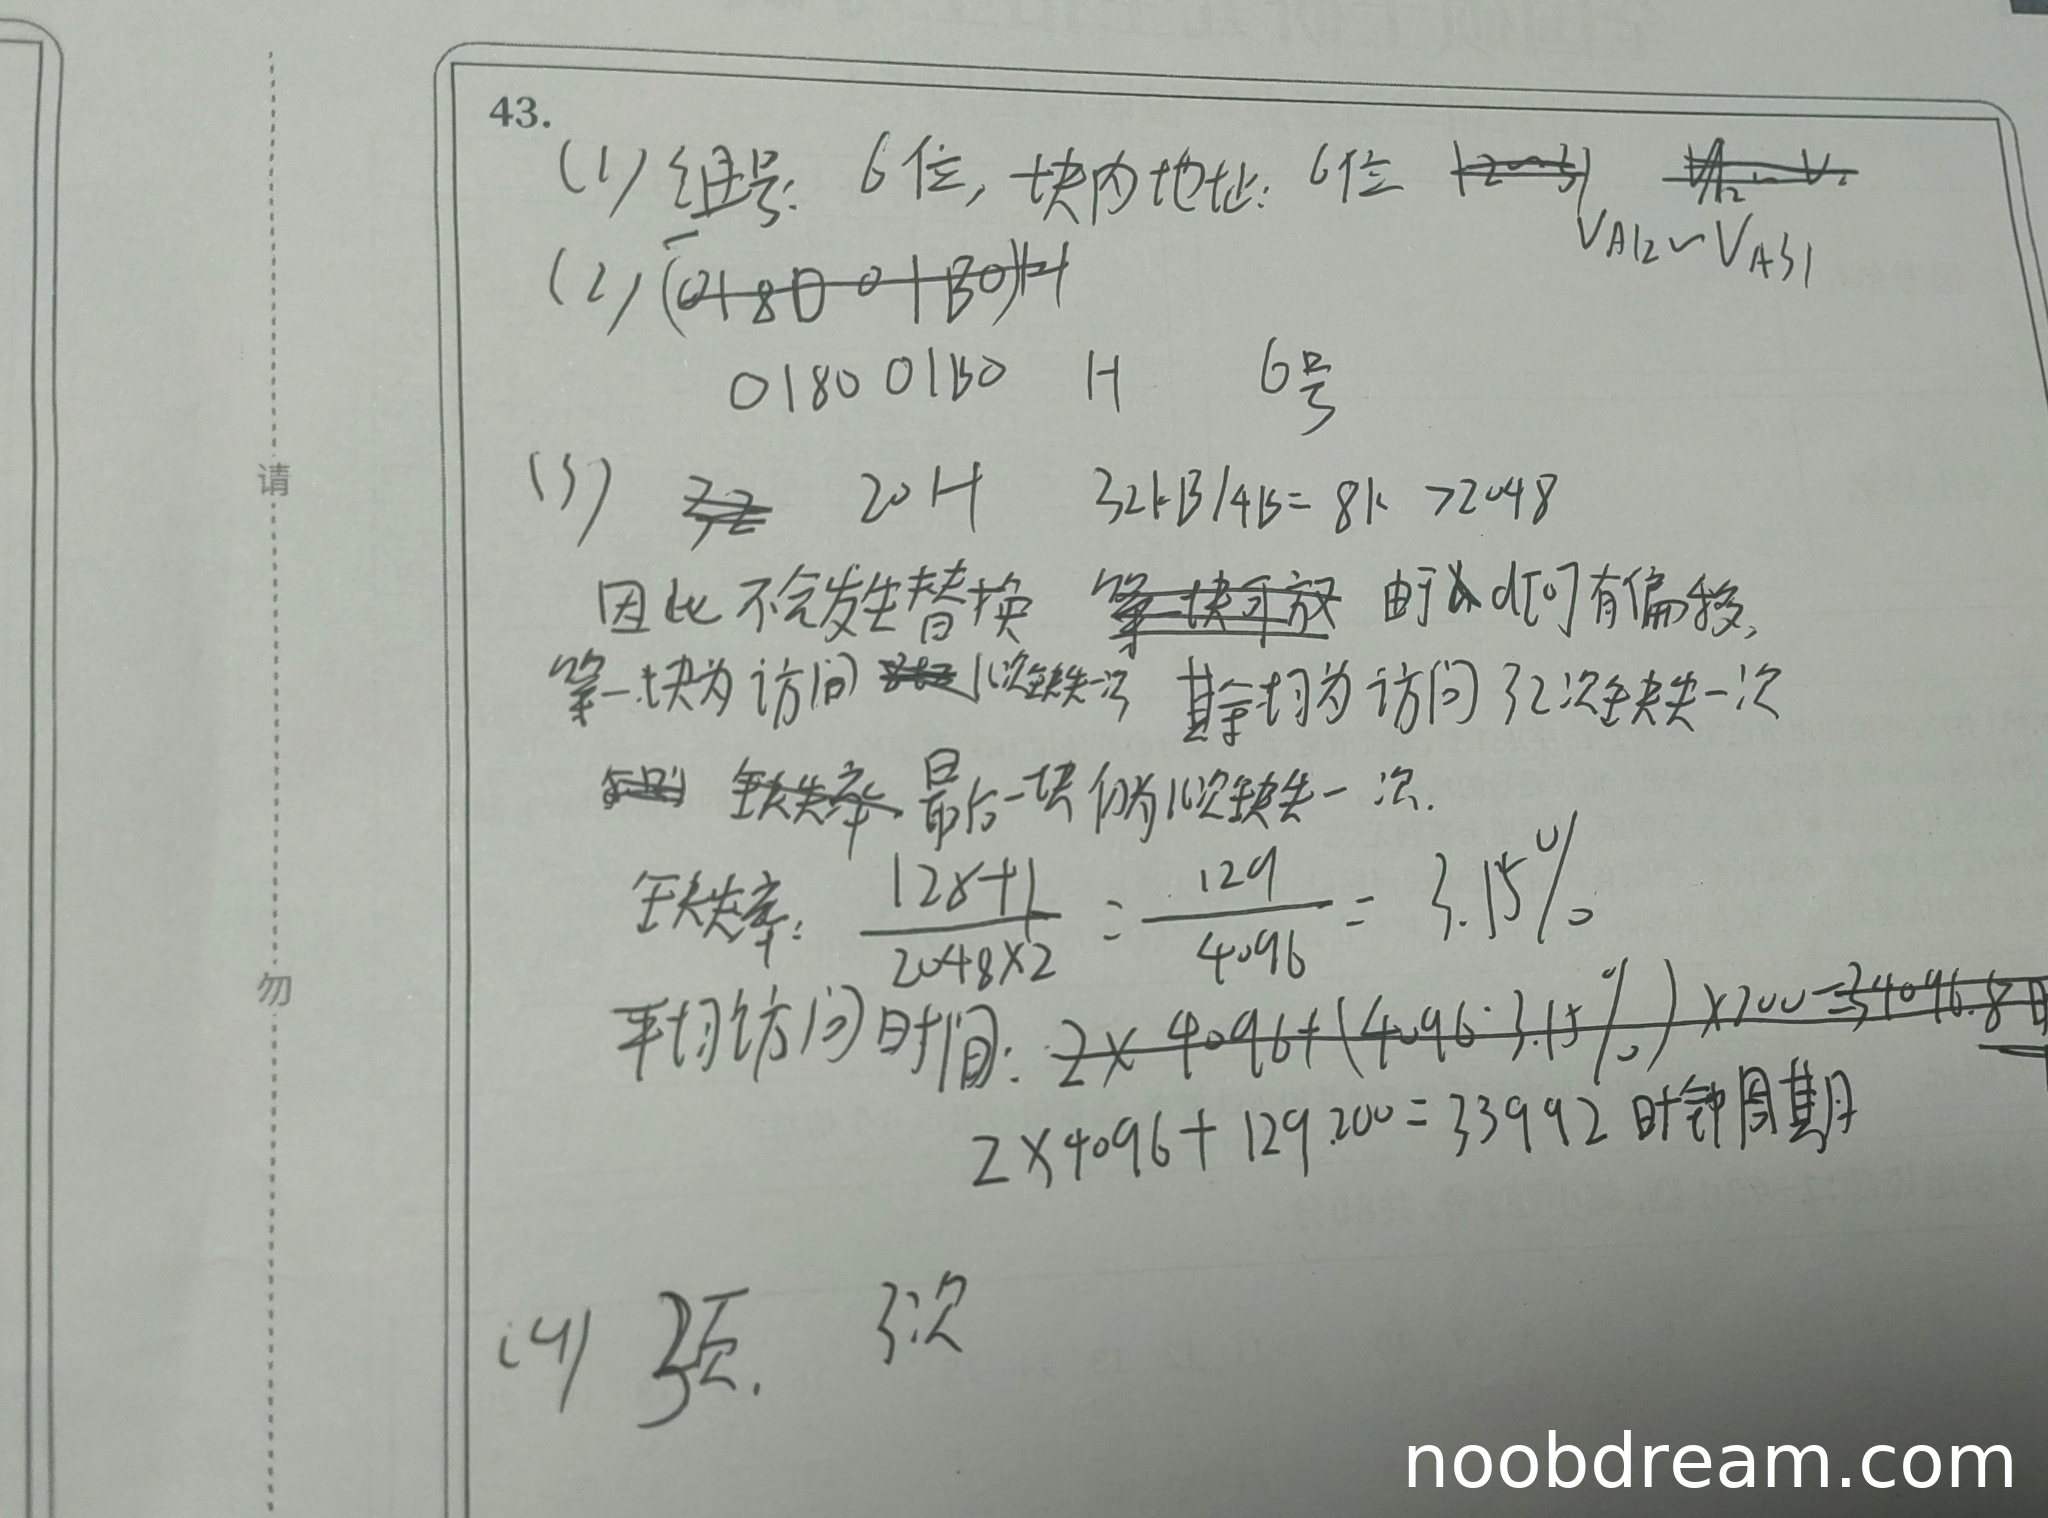 43.
(1) 组号: 6位, 块内地址: 6位
VA12~VA31
(2)
018001B0 H 6号
(3) 20H 32KB/4B= 8K >2048
因此不会发生替换 由于 d[0]有偏移,
第一块为访问 16次缺失一次 其余均为访问32次缺失一次
最后一块仍为16次缺失一次.
缺失率: 128+1 / 2048×2 = 129 / 4096 = 3.15%
平均访问时间:
2×4096+129.200=33992 时钟周期
(4) 3次
请
勿
noobdream.com